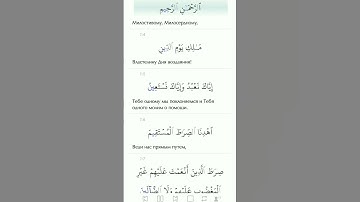 ٱلرَّحْمَٰنِ ٱلرَّحِيمِ
Милостивому, Милосердному,
1:4
مَٰلِكِ يَوْمِ ٱلدِّينِ
Властелину Дня воздаяния!
1:5
إِيَّاكَ نَعْبُدُ وَإِيَّاكَ نَسْتَعِينُ
Тебе одному мы поклоняемся и Тебя
одного молим о помощи.
1:6
ٱهْدِنَا ٱلصِّرَٰطَ ٱلْمُسْتَقِيمَ
Веди нас прямым путем,
1:7
صِرَٰطَ ٱلَّذِينَ أَنْعَمْتَ عَلَيْهِمْ غَيْرِ
ٱلْمَغْضُوبِ عَلَيْهِمْ وَلَا ٱلضَّآلِّينَ